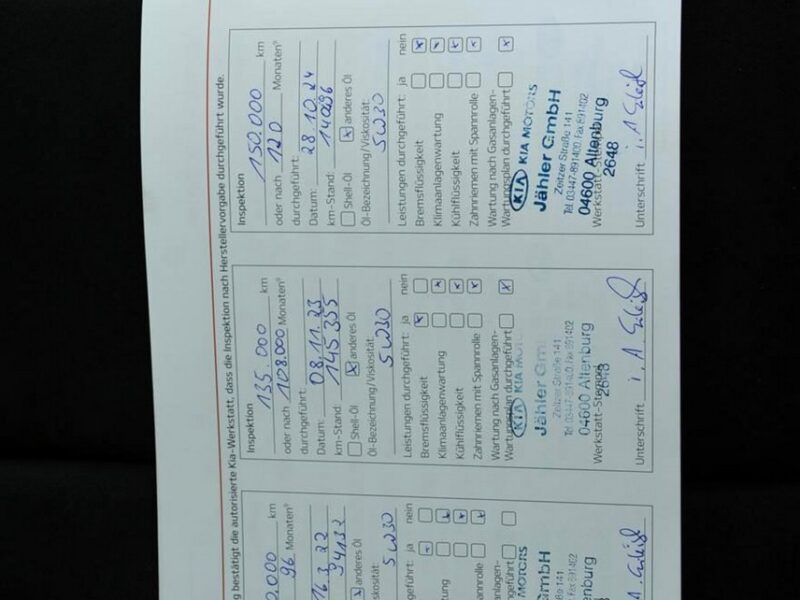 g bestätigt die autorisierte Kia-Werkstatt, dass die Inspektion nach Herstellervorgabe durchgeführt wurde.
km
96 Monaten⁹
94132
anderes Öl
skosität:
5W30
ührt: ja nein
t
tung
annrolle
sanlagen-
hgeführt
MOTORS
mbH
aße 141
891402
nburg
Inspektion
135 000 km
oder nach 108.000 Monaten⁹
durchgeführt:
Datum: 08.11.23
km-Stand: 145355
Shell-Öl x anderes Öl
Öl-Bezeichnung/Viskosität:
5W30
Leistungen durchgeführt: ja nein
Bremsflüssigkeit x
Klimaanlagenwartung x
Kühlflüssigkeit x
Zahnriemen mit Spannrolle x
Wartung nach Gasanlagen-
Wartungsplan durchgeführt x
KIA KIA MO
Jähler Gm
Zeitzer Straße 141
Tel. 03447-891400, Fax 891402
04600 Altenburg
Werkstatt-Stempel
2648
Unterschrift
Inspektion
150.000 km
oder nach 120 Monaten⁹
durchgeführt:
Datum: 28.10.24
km-Stand:
Shell-Öl x anderes Öl
Öl-Bezeichnung/Viskosität:
5W30
Leistungen durchgeführt: ja nein
Bremsflüssigkeit x
Klimaanlagenwartung x
Kühlflüssigkeit x
Zahnriemen mit Spannrolle x
Wartung nach Gasanlagen-
Wartungsplan durchgeführt x
KIA KIA MOTORS
Jähler GmbH
Zeitzer Straße 141
Tel. 03447-891400, Fax 891402
04600 Altenburg
Werkstatt-Stempel
2648
Unterschrift